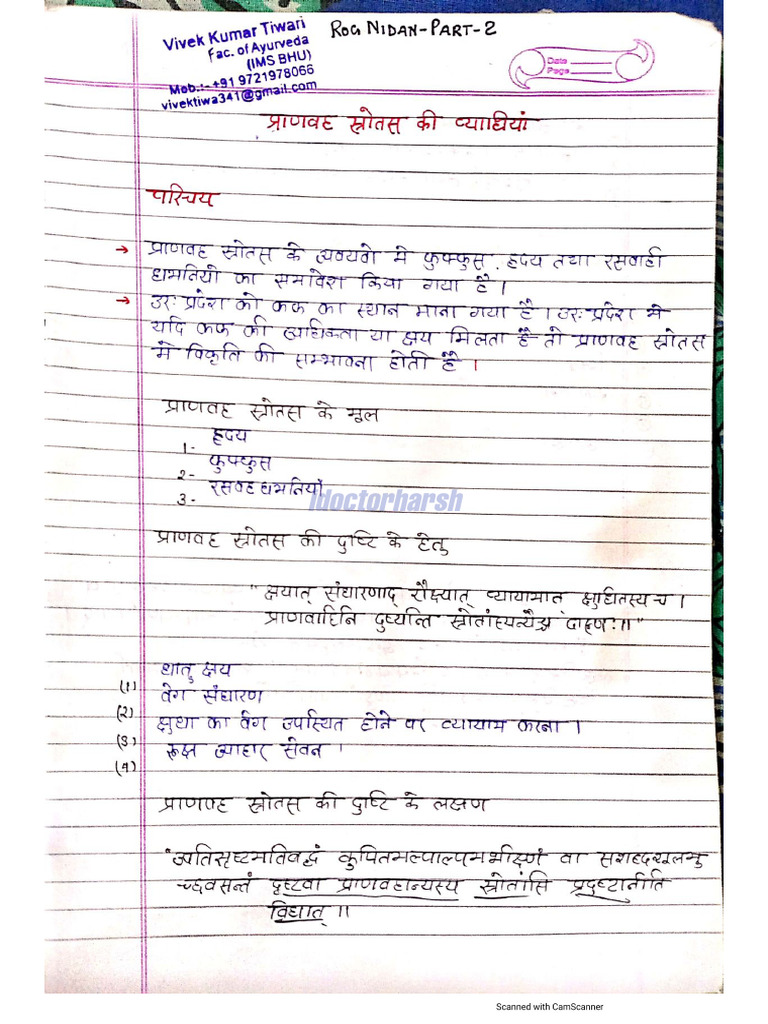 Vivek Kumar Tiwari
Fac. of Ayurveda
(IMS BHU)
Mob.:- +91 9721978066
vivektiwa341@gmail.com
ROG NIDAN-PART-2
Date
Page
प्राणवह स्रोतस की व्याधियां
परिचय
→ प्राणवह स्रोतस के अवयवो मे फुफ्फुस, हृदय तथा रसवाही
धमनियो का समावेश किया गया है।
→ उरः प्रदेश को कफ का स्थान माना गया है। उरः प्रदेश मे
यदि कफ की अधिकता या क्षय मिलता है तो प्राणवह स्रोतस
मे विकृति की सम्भावना होती है।
प्राणवह स्रोतस के मूल
1- हृदय
2- फुफ्फुस
3- रसवह धमनियाँ
idoctorharsh
प्राणवह स्रोतस की दुष्टि के हेतु
"क्षयात् संधारणाद् रौक्ष्यात् व्यायामात् क्षुधितस्य च।
प्राणवाहिनि दुष्यन्ति स्रोतांस्यन्यैश्च दारुणैः॥"
(1) धातु क्षय
(2) वेग संधारण
(3) क्षुधा का वेग उपस्थित होने पर व्यायाम करना।
(4) रूक्ष आहार सेवन।
प्राणवह स्रोतस की दुष्टि के लक्षण
"अतिसृष्टमतिबद्धं कुपितमल्पाल्पमभीक्ष्णं वा सशब्दशूलमु
च्छवसन्तं दृष्टवा प्राणवहान्यस्य स्रोतांसि प्रदुष्टानीति
विद्यात्॥
Scanned with CamScanner